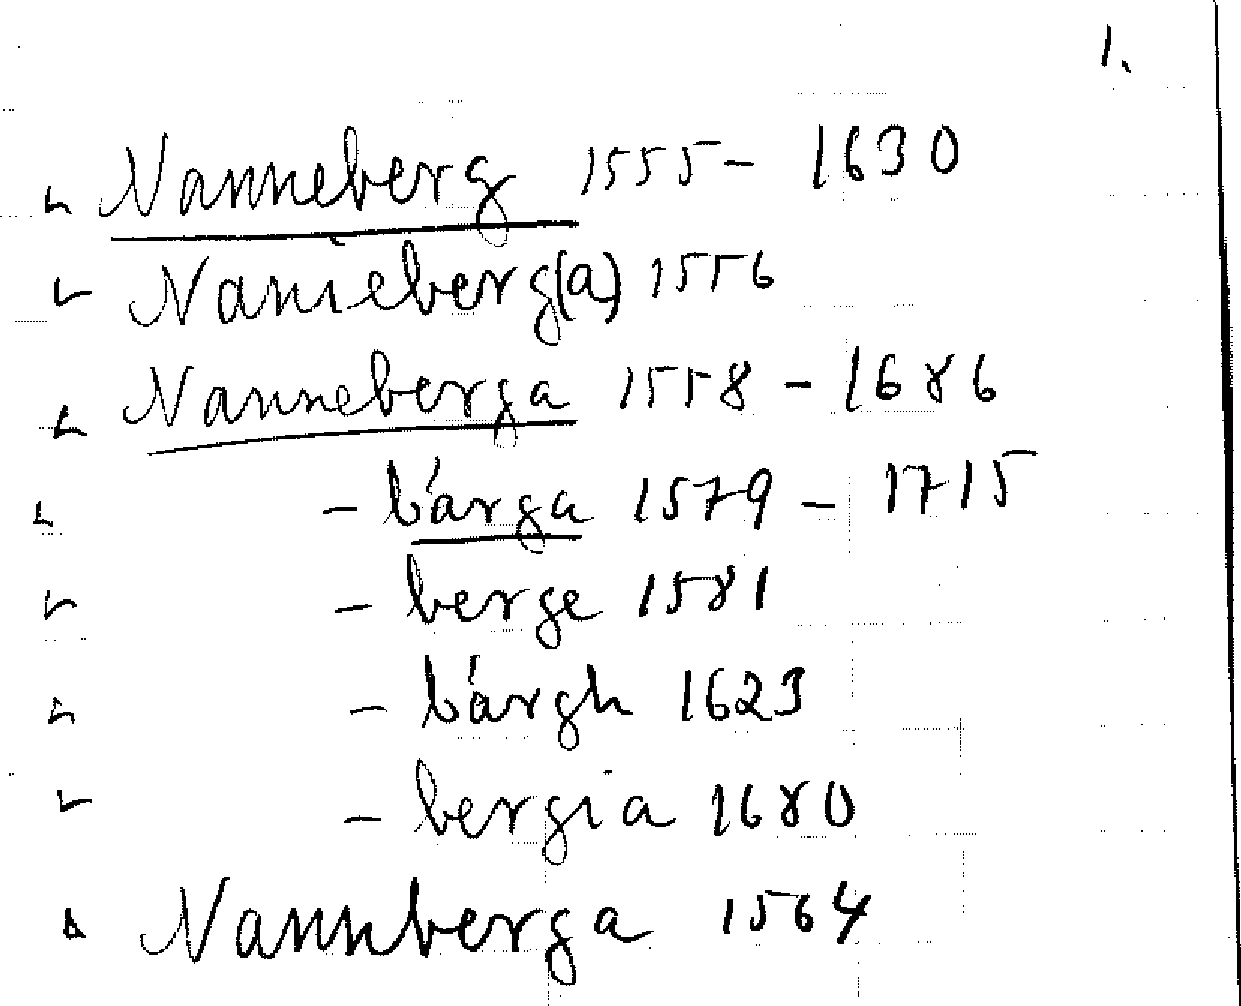 1.
Nanneberg 1555 - 1630
Nanneberg(a) 1556
Nanneberga 1558 - 1686
- bärga 1579 - 1715
- berge 1581
- bärgh 1623
- bergia 1680
Nannberga 1564